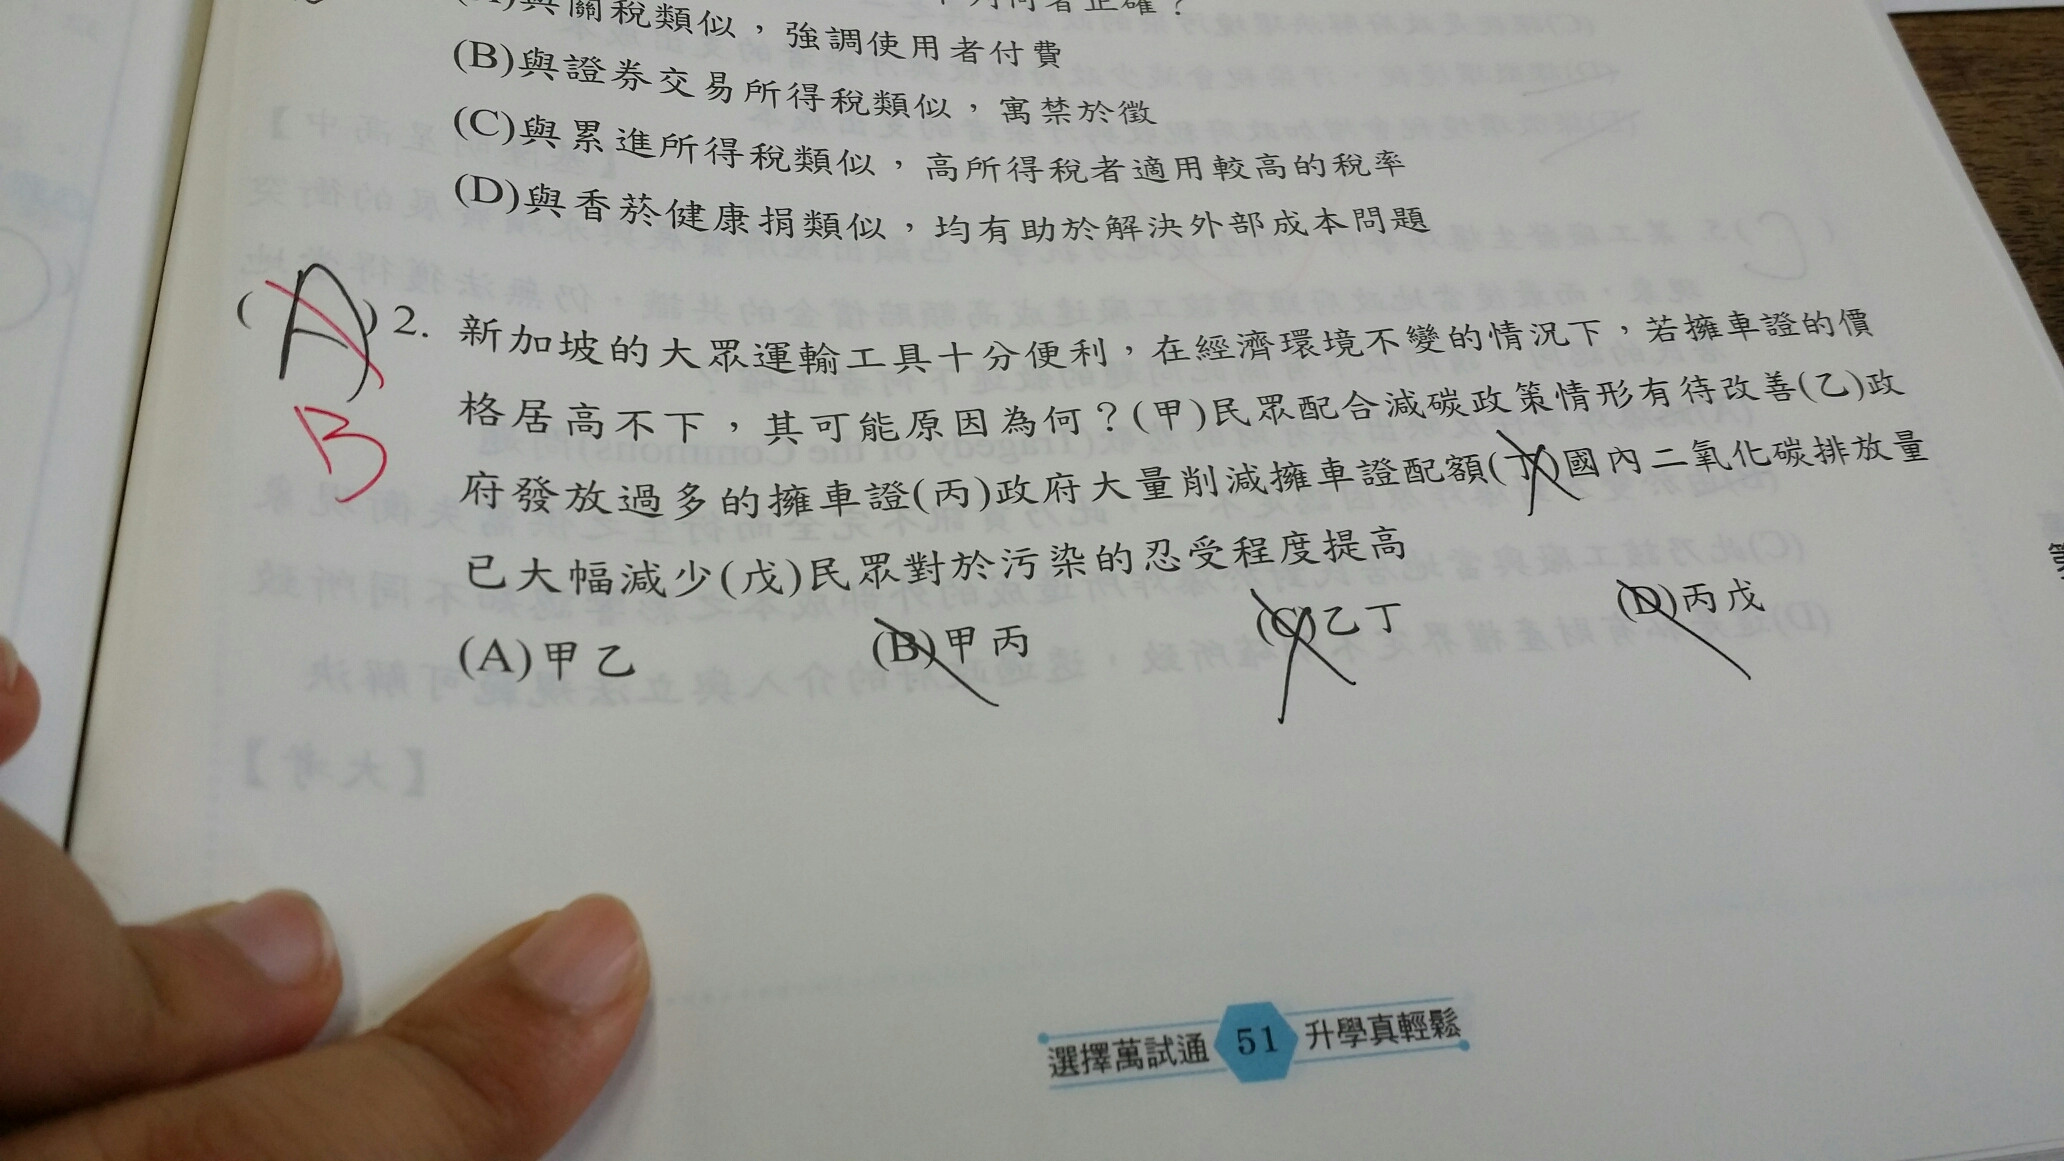 與關稅類似，強調使用者付費
(B)與證券交易所得稅類似，寓禁於徵
(C)與累進所得稅類似，高所得稅者適用較高的稅率
(D)與香菸健康捐類似，均有助於解決外部成本問題
(A)2. 新加坡的大眾運輸工具十分便利，在經濟環境不變的情況下，若擁車證的價
B
格居高不下，其可能原因為何？(甲)民眾配合減碳政策情形有待改善(乙)政
府發放過多的擁車證(丙)政府大量削減擁車證配額(丁)國內二氧化碳排放量
已大幅減少(戊)民眾對於污染的忍受程度提高
(A)甲乙 (B)甲丙 (C)乙丁 (D)丙戊
選擇萬試通 51 升學真輕鬆